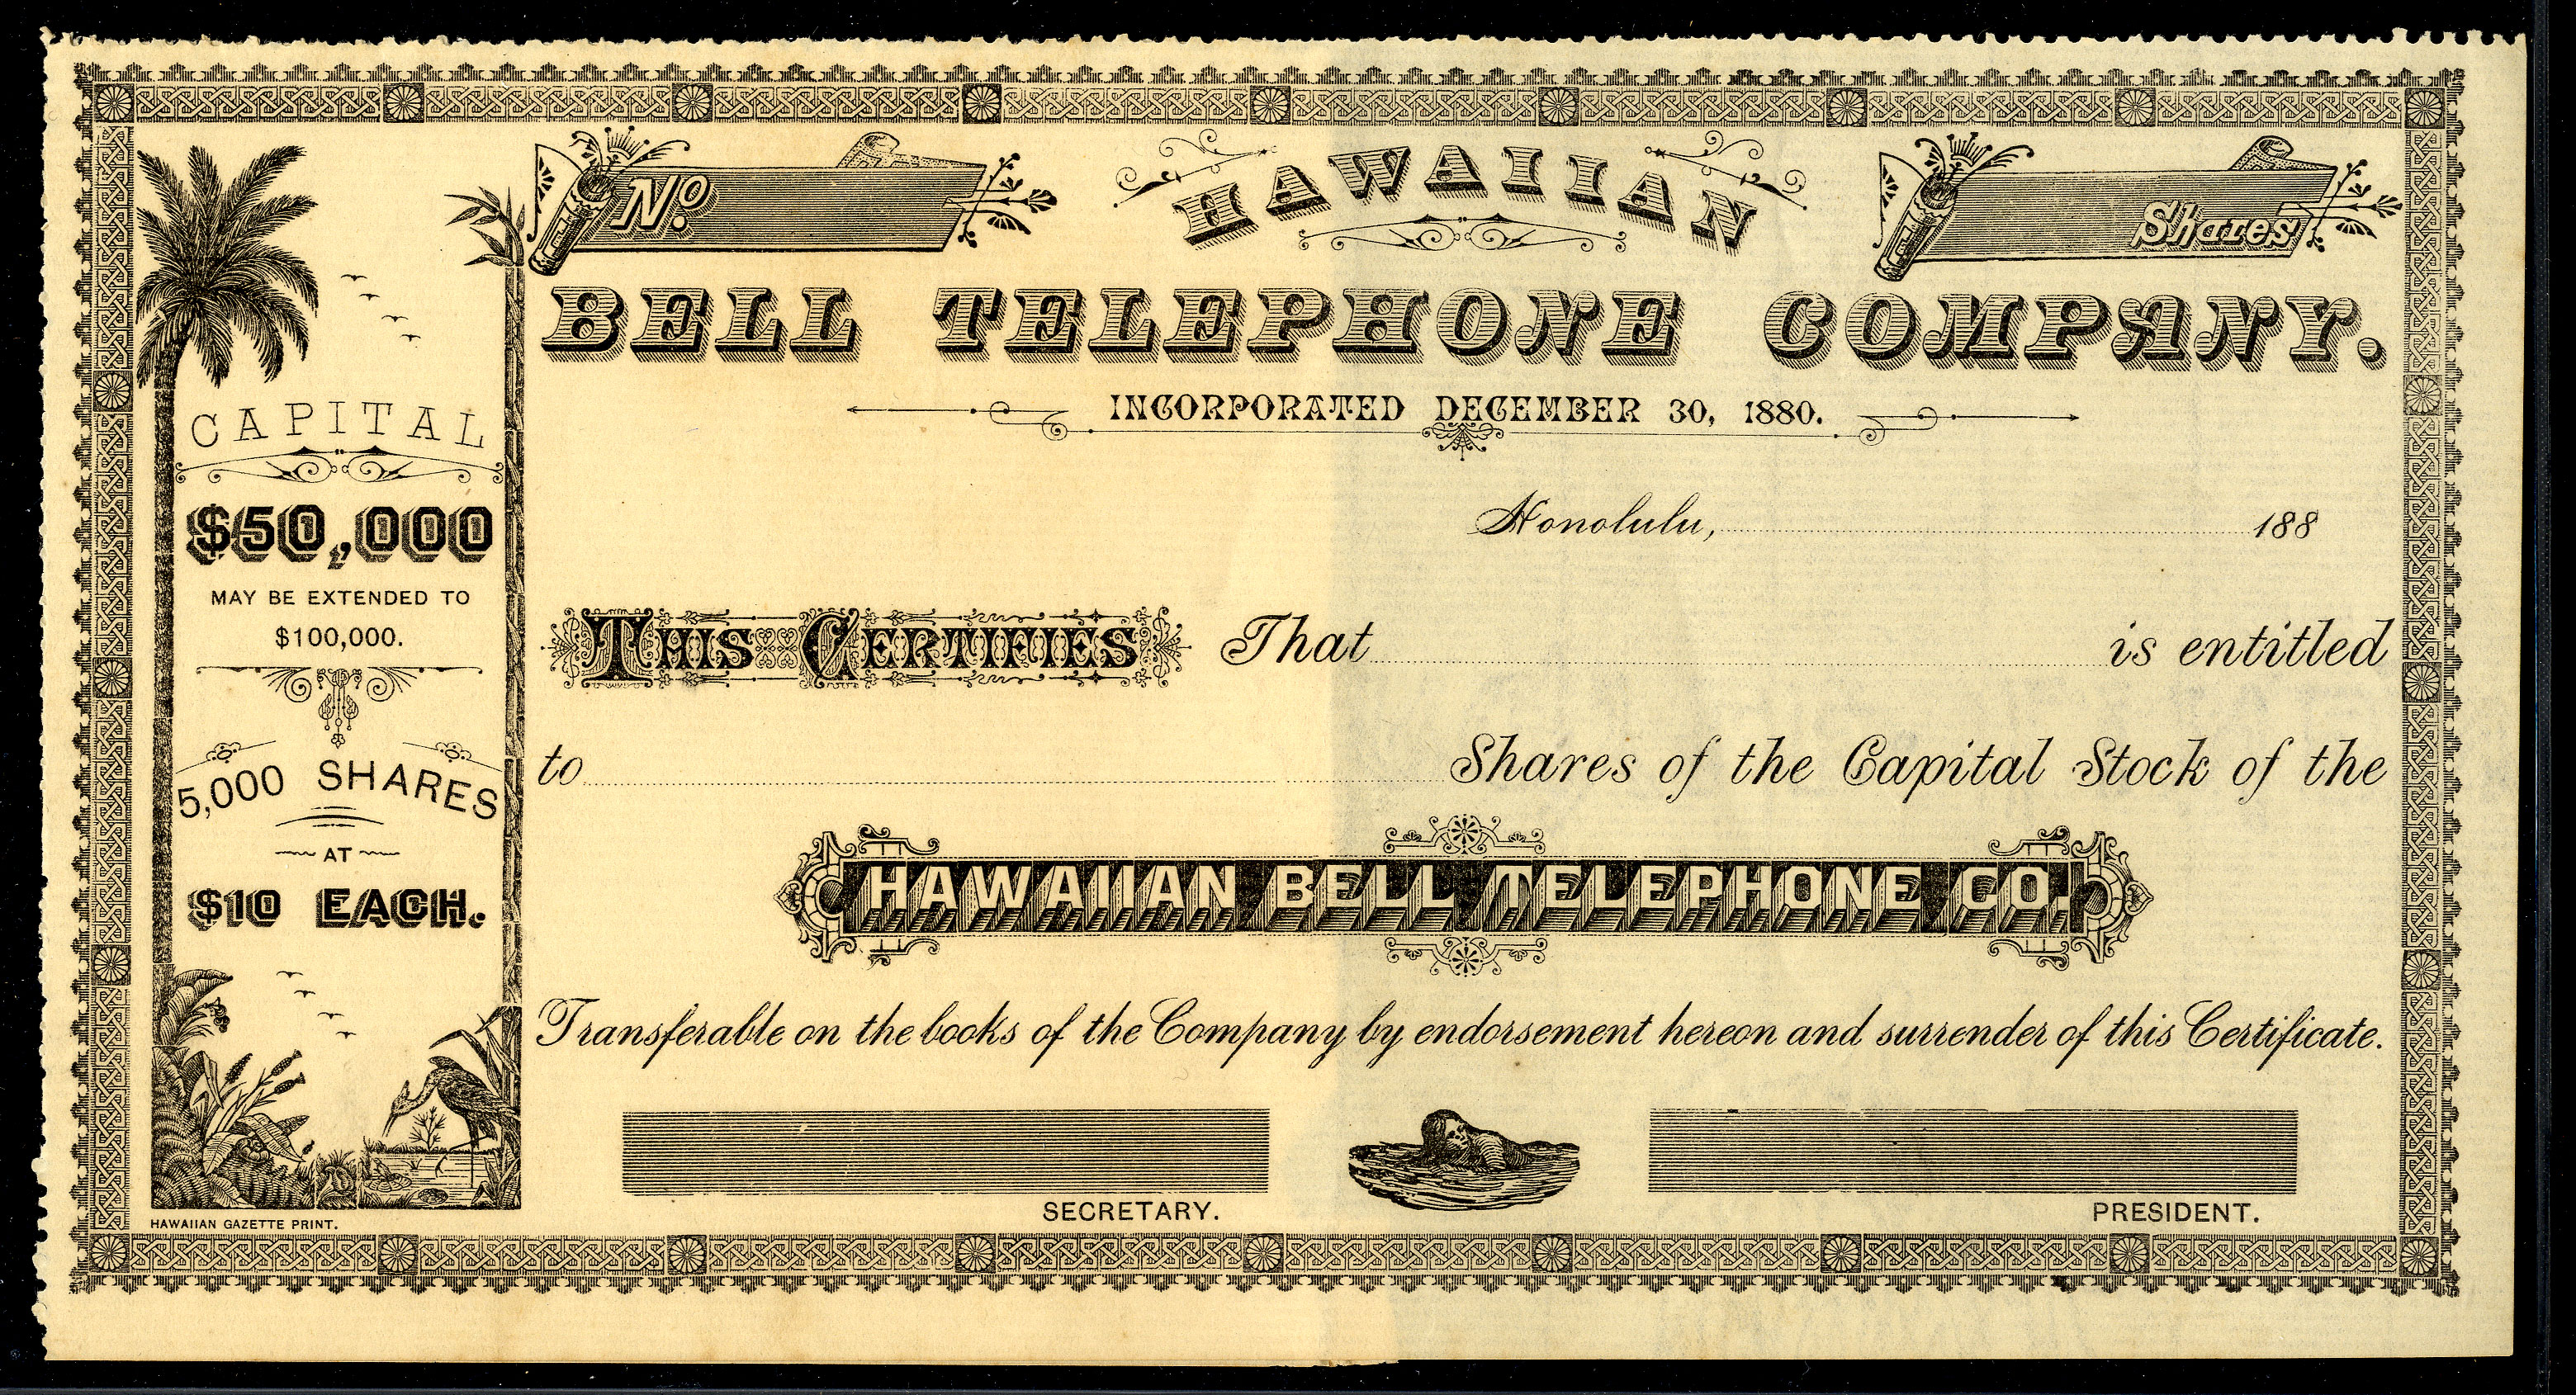 No.
HAWAIIAN
Shares
BELL TELEPHONE COMPANY.
INCORPORATED DECEMBER 30, 1880.
CAPITAL
$50,000
MAY BE EXTENDED TO
$100,000.
5,000 SHARES
AT
$10 EACH.
HAWAIIAN GAZETTE PRINT.
Honolulu, 188
THIS CERTIFIES That is entitled
to Shares of the Capital Stock of the
HAWAIIAN BELL TELEPHONE CO.
Transferable on the books of the Company by endorsement hereon and surrender of this Certificate.
SECRETARY.
PRESIDENT.